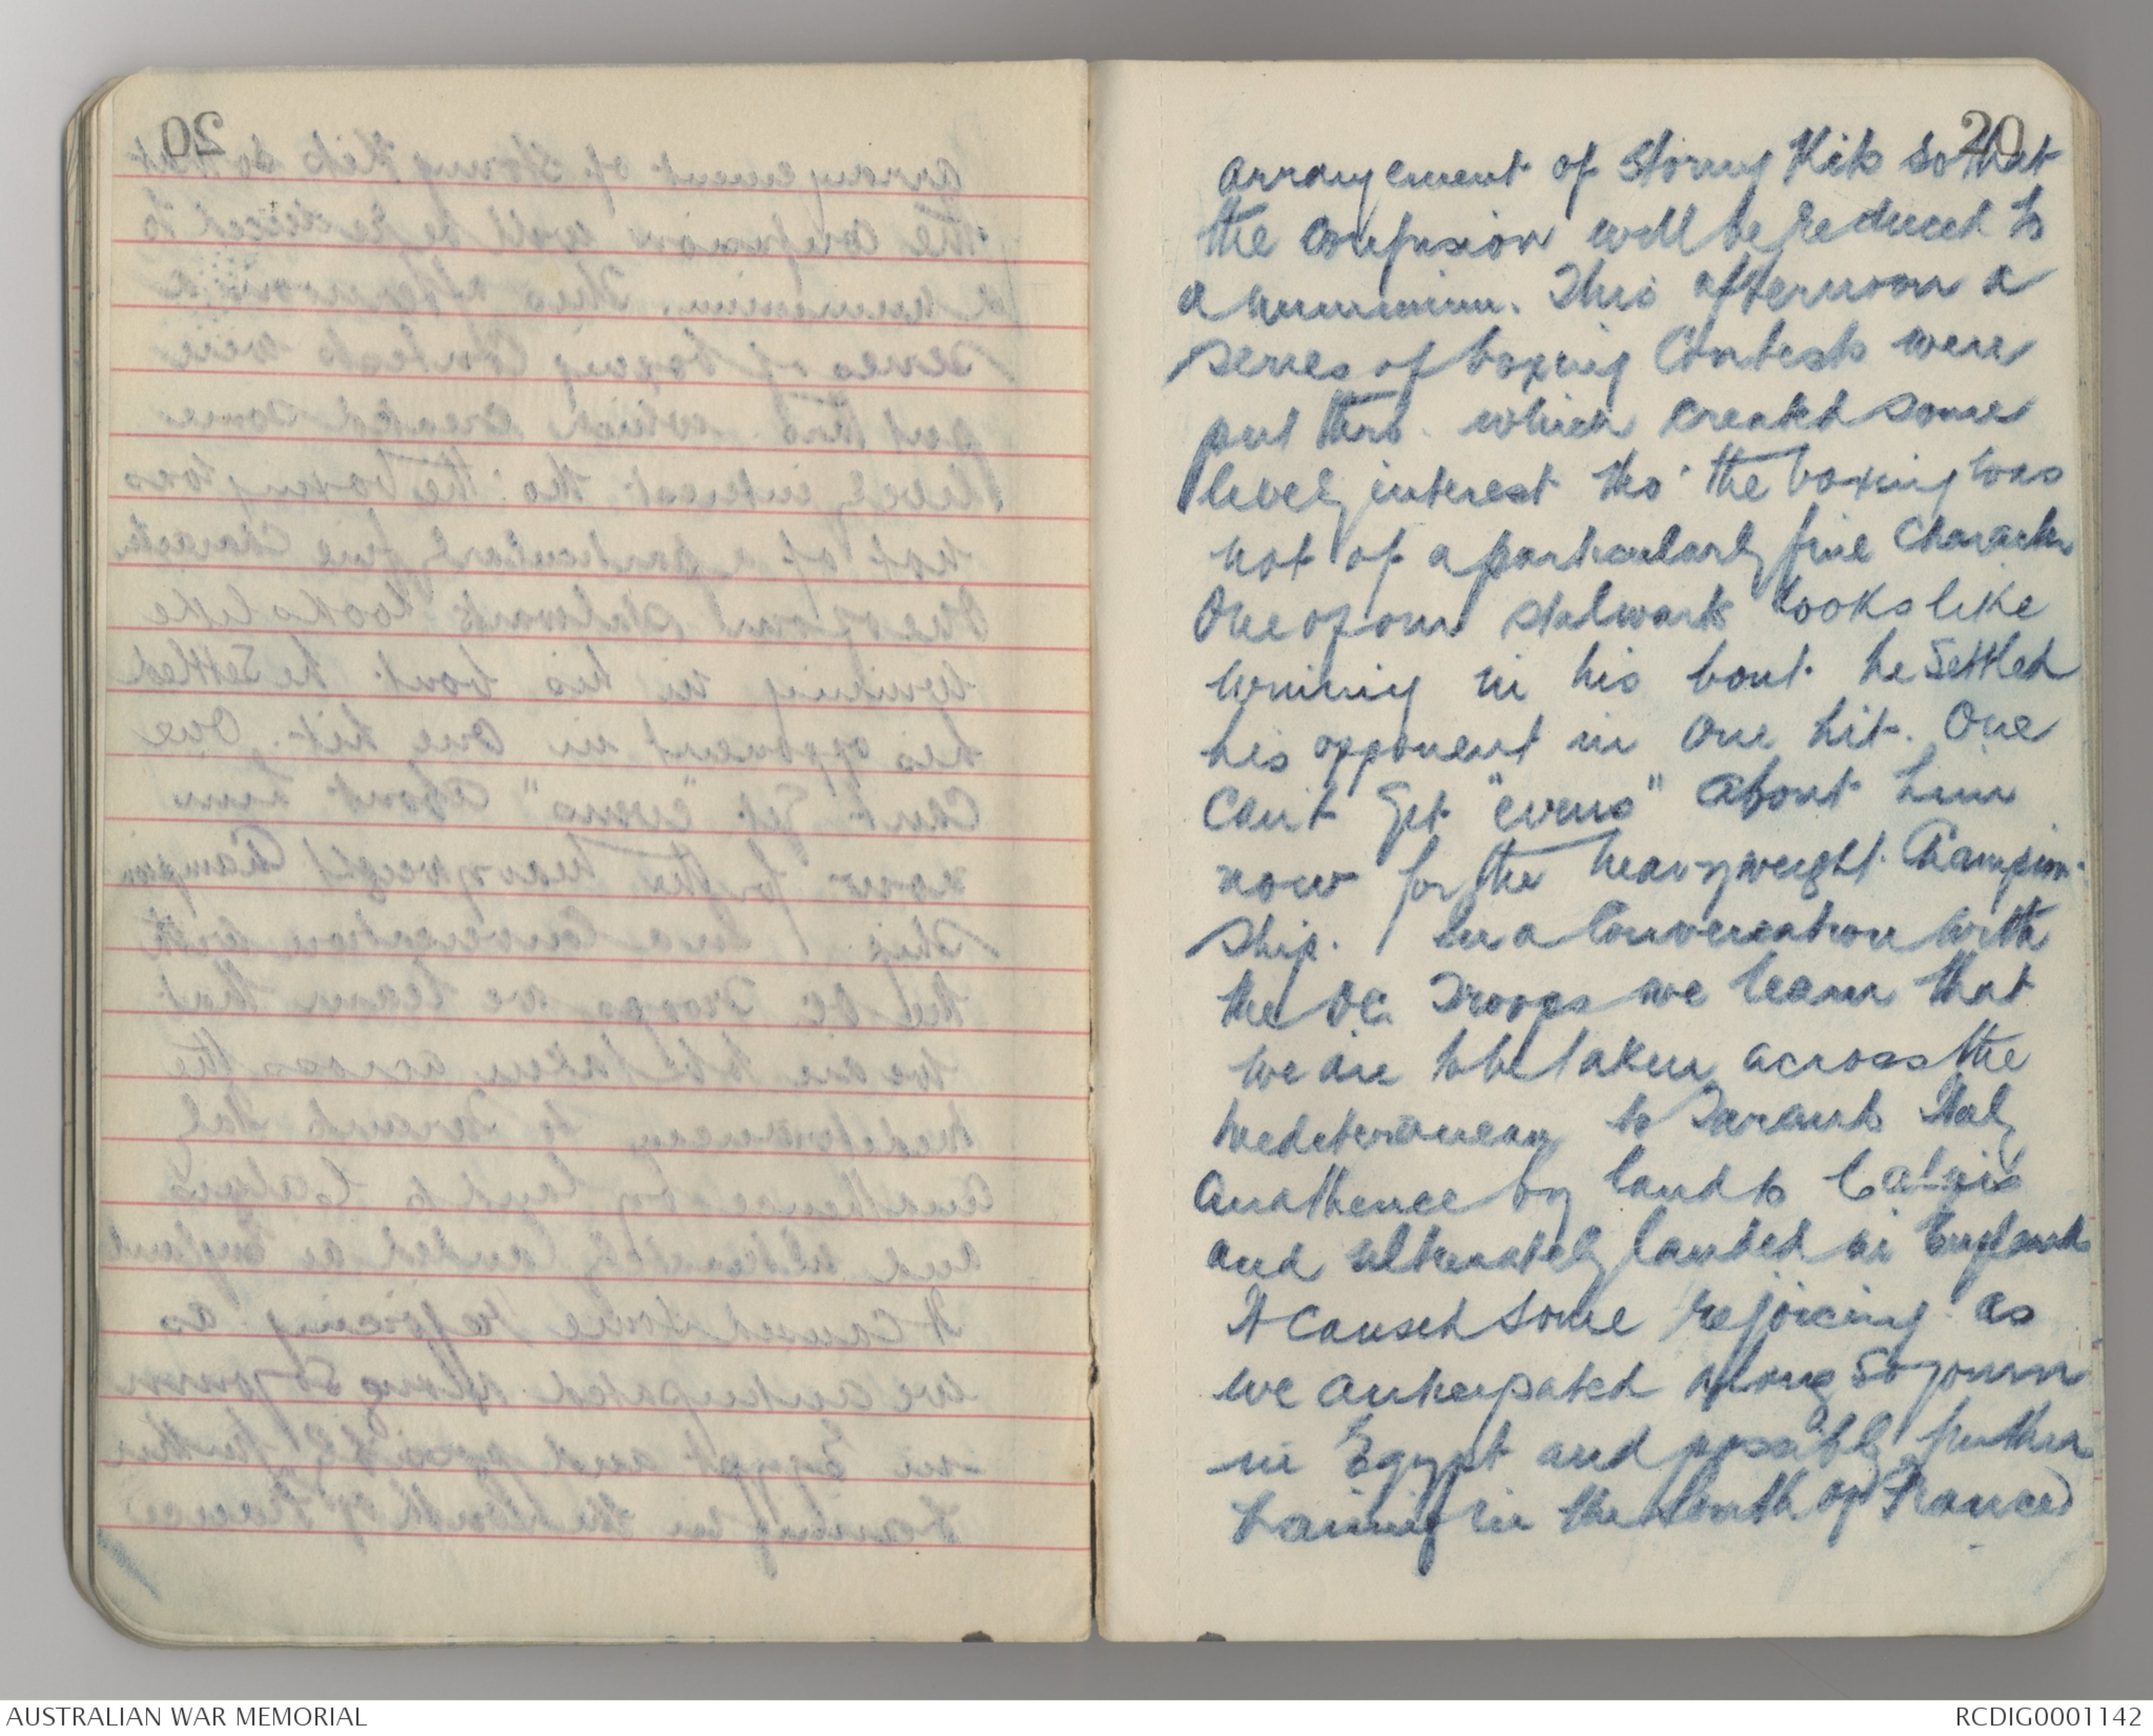 20
arrangement of storing Kits so that
the confusion will be reduced to
a minimum. This afternoon a
series of boxing Contests were
put thro. which created some
lively interest tho' the boxing was
not of a particularly fine Character
One of our stalwarts looks like
wining in his bout. he settled
his opponent in one hit. One
Can't get "evens" about him
now for the heavyweight Champion-
ship. In a Conversation with
the OC. Troops we learn that
we are to be taken across the
Mediteranean to Taranto Italy
and thence by land to Calais
and ultimately landed in England
It caused some rejoicing as
we anticipated along sojourn
in Egypt and possibly further
training in the South of France
AUSTRALIAN WAR MEMORIAL
RCDIG0001142